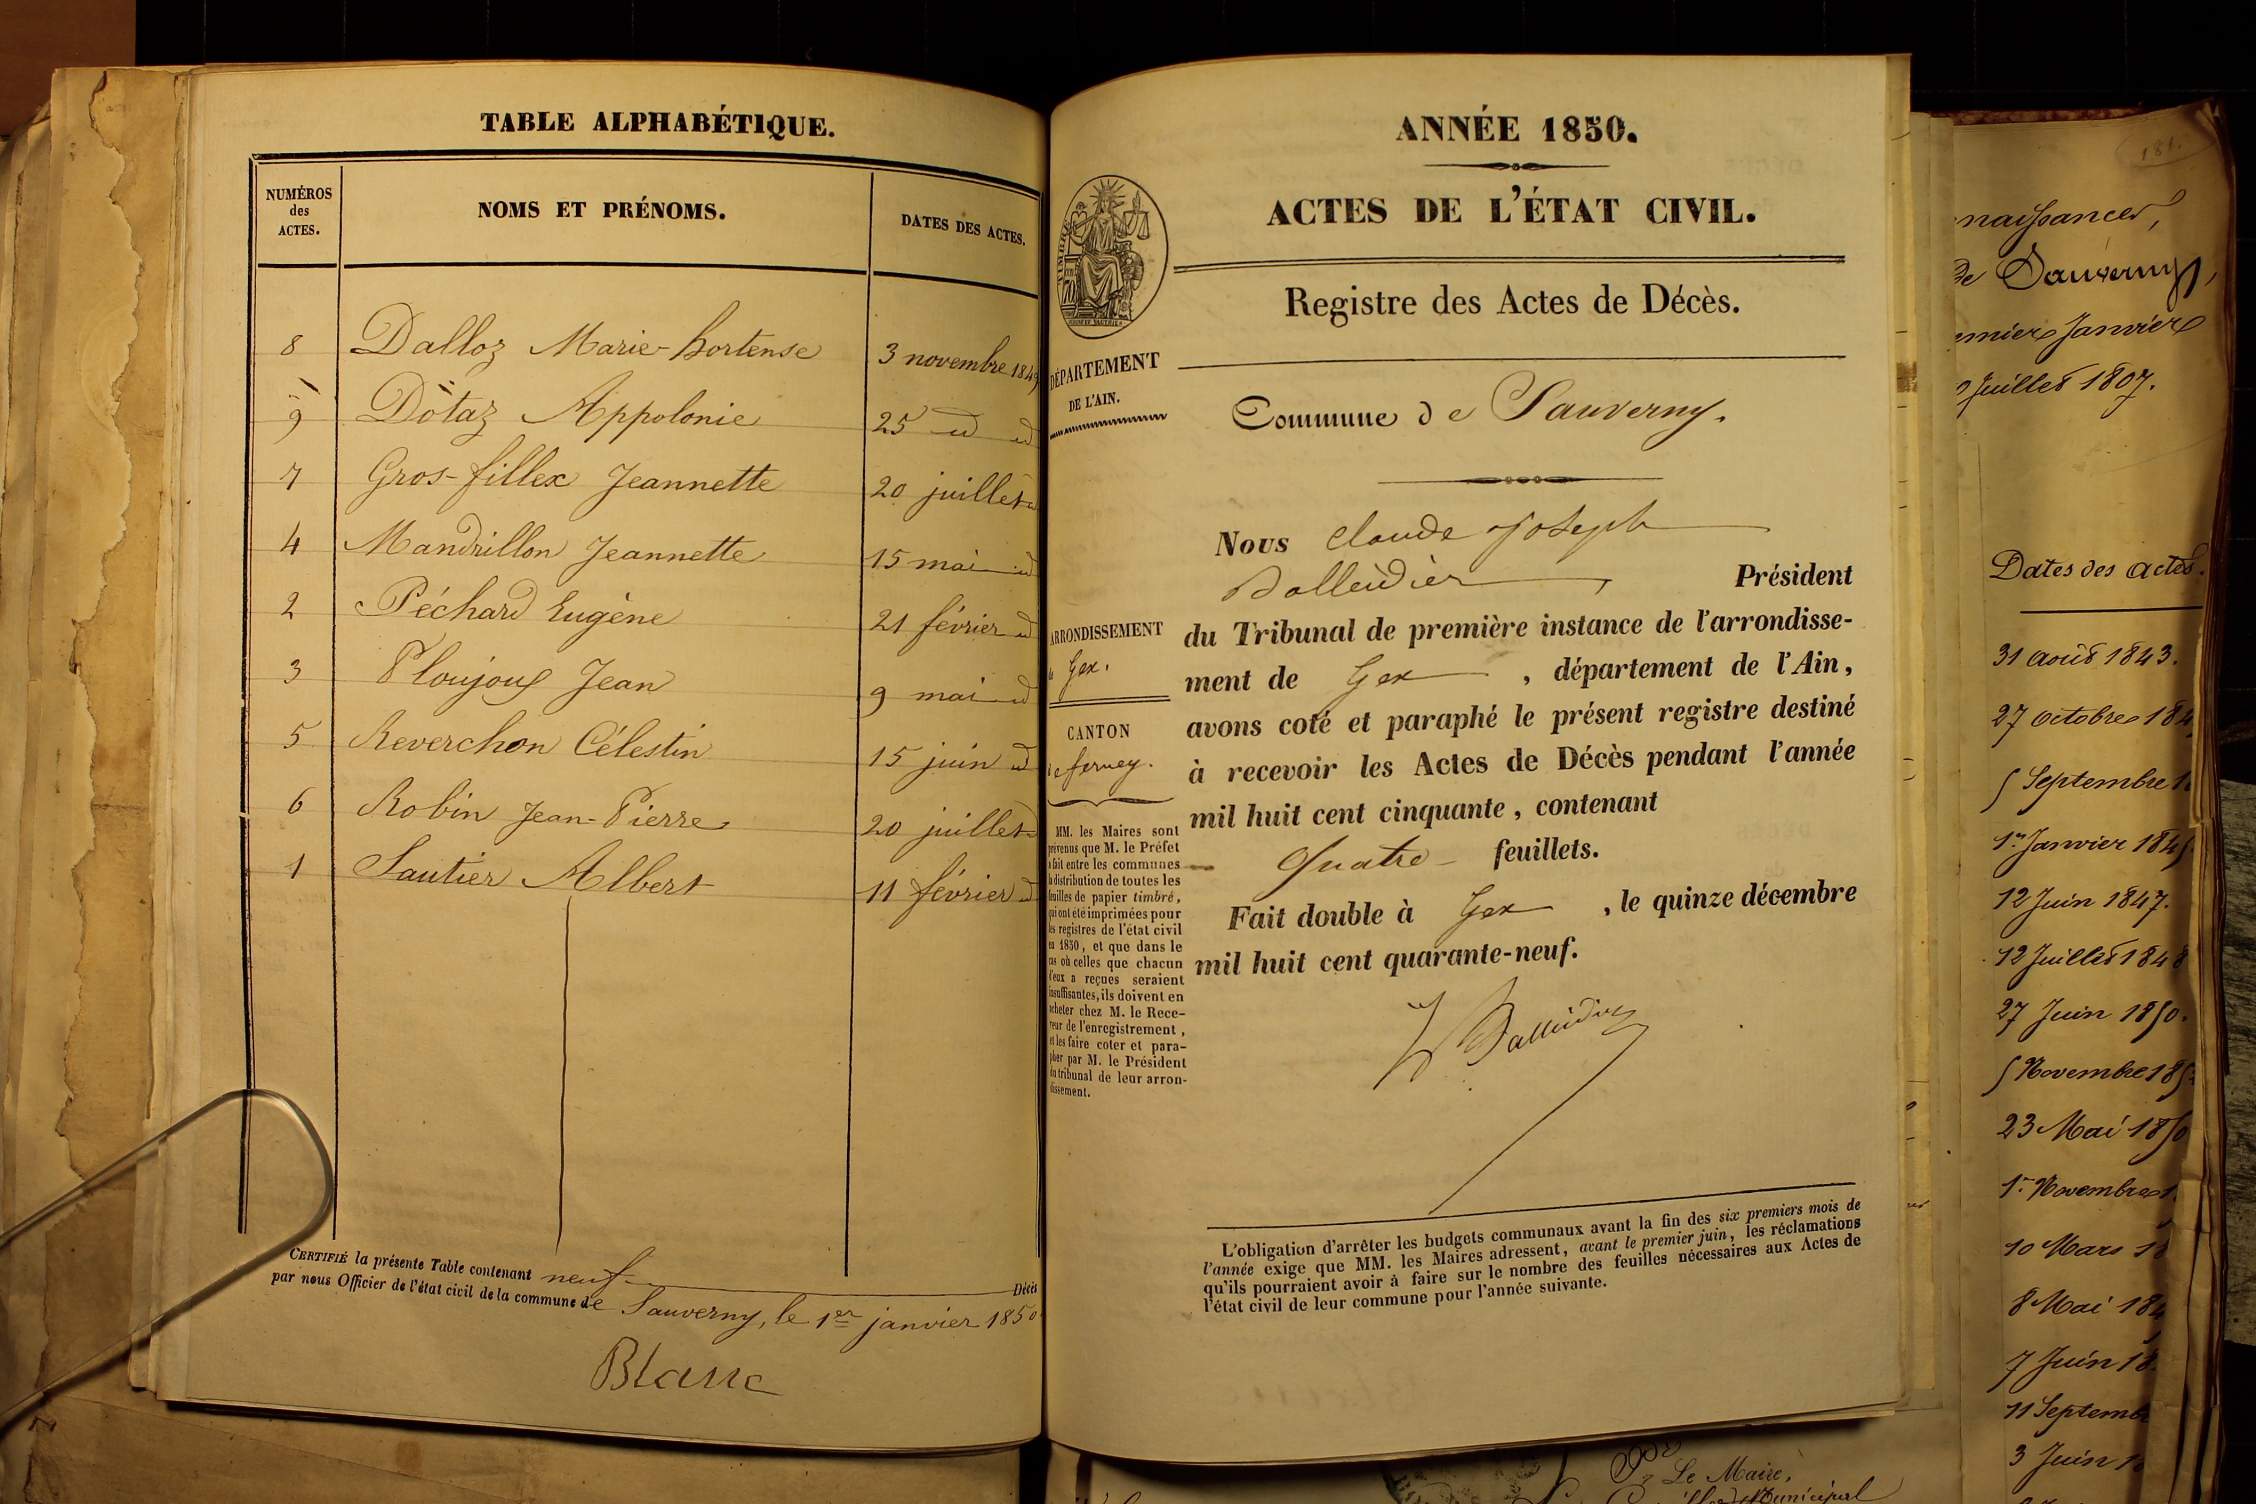 TABLE ALPHABÉTIQUE.
NUMÉROS
des
ACTES.
NOMS ET PRÉNOMS.
DATES DES ACTES.
8 Dalloz Marie-hortense 3 novembre 1849
9 Dôtaz Appolonie 25 id id
7 Gros-fillex Jeannette 20 juillet id
4 Mandrillon Jeannette 15 mai id
2 Péchard Eugène 21 février id
3 Ploujoux Jean 9 mai id
5 Reverchon Célestin 15 juin id
6 Robin Jean-Pierre 20 juillet
1 Sautier Albert 11 février id
CERTIFIÉ la présente Table contenant neuf Décès
par nous Officier de l'état civil de la commune de Sauverny, le 1er janvier 1850
Blanc
ANNÉE 1850.
ACTES DE L'ÉTAT CIVIL.
Registre des Actes de Décès.
DÉPARTEMENT
DE L'AIN.
Commune de Sauverny.
ARRONDISSEMENT
de Gex.
CANTON
de ferney.
MM. les Maires sont
prévenus que M. le Préfet
a fait entre les communes
la distribution de toutes les
feuilles de papier timbré,
qui ont été imprimées pour
les registres de l'état civil
en 1850, et que dans le
cas où celles que chacun
d'eux a reçues seraient
insuffisantes, ils doivent en
acheter chez M. le Rece-
veur de l'enregistrement,
et les faire coter et para-
pher par M. le Président
du tribunal de leur arron-
dissement.
Nous Claude Joseph
Balleidier, Président
du Tribunal de première instance de l'arrondisse-
ment de Gex, département de l'Ain,
avons coté et paraphé le présent registre destiné
à recevoir les Actes de Décès pendant l'année
mil huit cent cinquante, contenant
Quatre feuillets.
Fait double à Gex, le quinze décembre
mil huit cent quarante-neuf.
Balleidier
L'obligation d'arrêter les budgets communaux avant la fin des six premiers mois de
l'année exige que MM. les Maires adressent, avant le premier juin, les réclamations
qu'ils pourraient avoir à faire sur le nombre des feuilles nécessaires aux Actes de
l'état civil de leur commune pour l'année suivante.
181.
naissances,
de Sauverny,
Janvier
Juillet 1807.
Dates des actes.
31 août 1843.
27 octobre 184
5 Septembre 1
1er Janvier 184
12 Juin 1847.
12 Juillet 1848
27 Juin 1850.
5 Novembre 185
23 Mai 1850
1er Novembre 1
10 Mars 18
8 Mai 184
7 Juin 18
11 Septemb
3 Juin 1
Le Maire,
Municipal